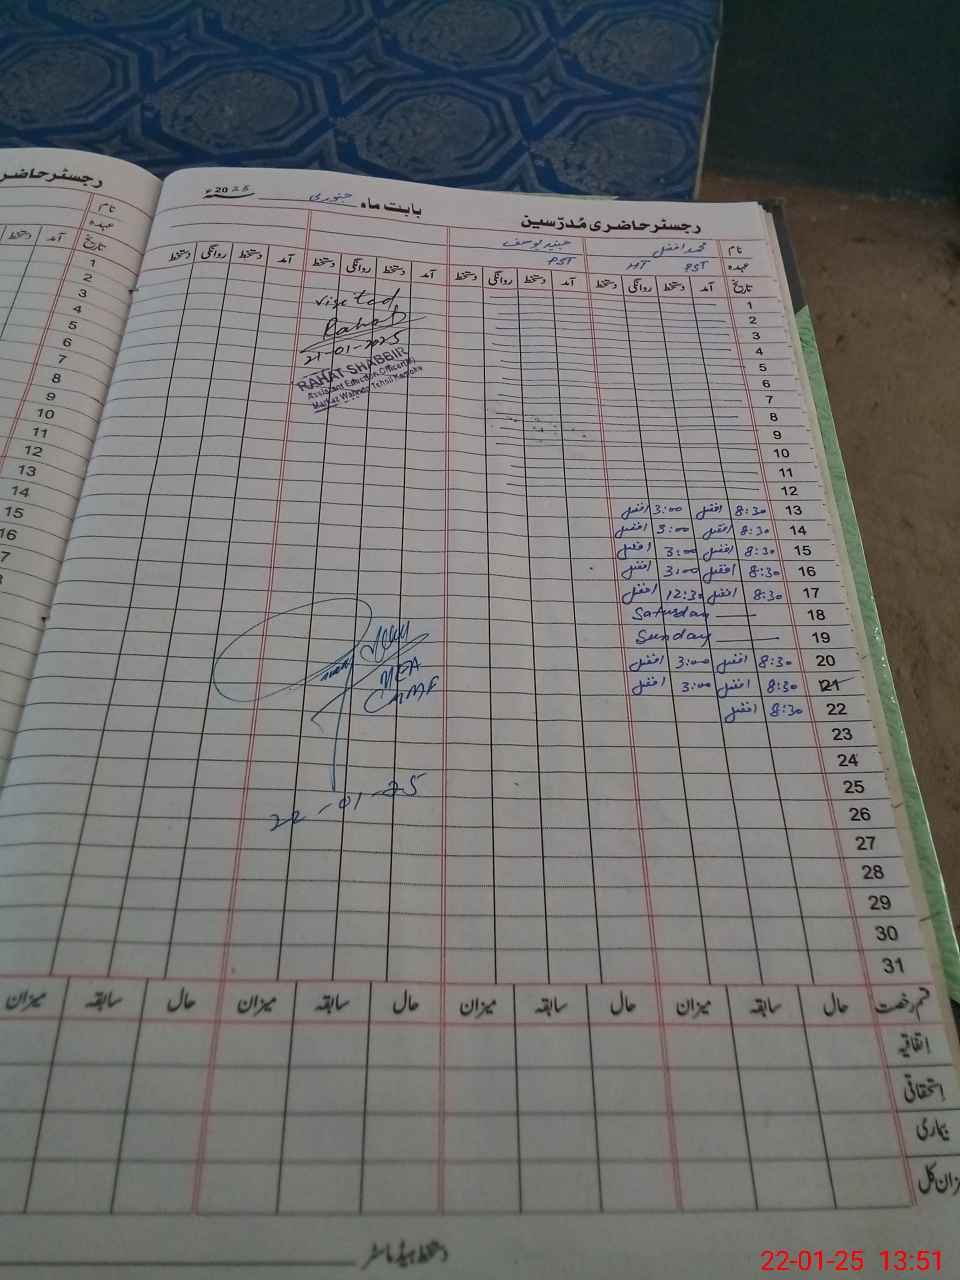 رجسٹر حاضری مُدرّسین بابت ماہ جنوری 2025ء
نام محمد افضل جنید یوسف
عہدہ PST HT PST
تاریخ آمد دستخط روانگی دستخط آمد دستخط روانگی دستخط آمد دستخط روانگی دستخط آمد دستخط روانگی دستخط
1
2
3
4
5
6
7
8
9
10
11
12
13 8:30 افضل 3:00 افضل
14 8:30 افضل 3:00 افضل
15 8:30 افضل 3:00 افضل
16 8:30 افضل 3:00 افضل
17 8:30 افضل 12:30 افضل
18 Saturday
19 Sunday
20 8:30 افضل 3:00 افضل
21 8:30 افضل 3:00 افضل
22 8:30 افضل
23
24
25
26
27
28
29
30
31
visited
Rahat
21-01-2025
RAHAT SHABBIR
Assistant Education Officer(M)
Markaz Wahndo Tehsil Kamoke
MEA
22-01-25
قسم رخصت حال سابقہ میزان حال سابقہ میزان حال سابقہ میزان حال سابقہ میزان
اتفاقیہ
استحقاقی
بیماری
میزان کل
دستخط ہیڈ ماسٹر
رجسٹر حاضر
نام
عہدہ
تاریخ آمد دستخط
1
2
3
4
5
6
7
8
9
10
11
12
13
14
15
16
7
22-01-25 13:51